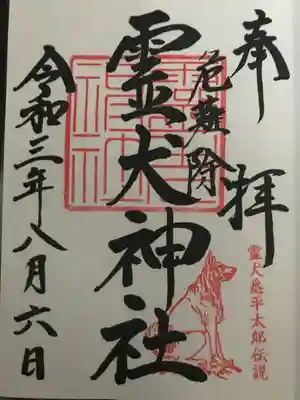 奉拝
厄難除
霊犬神社
令和三年八月六日
霊犬悉平太郎伝説